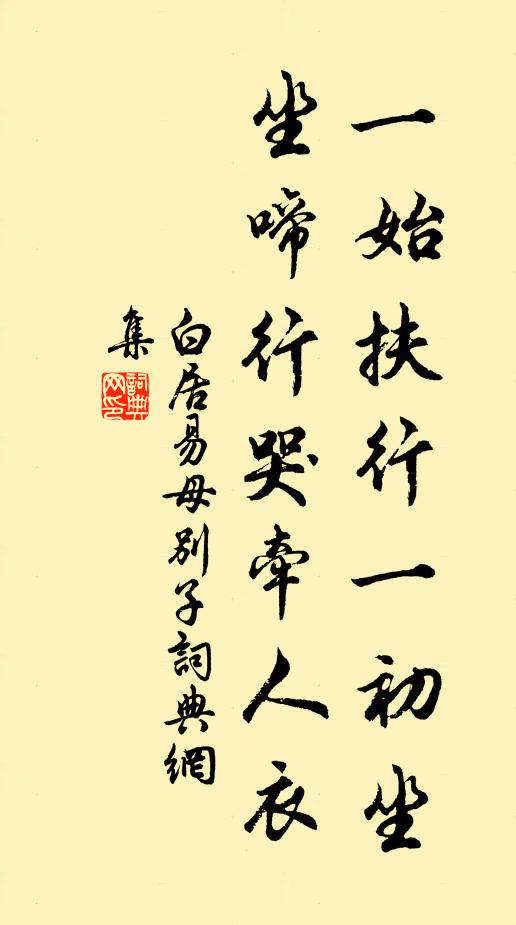 一始扶行一初坐
坐啼行哭牽人衣
白居易母別子詞典網
集
詞典
网印